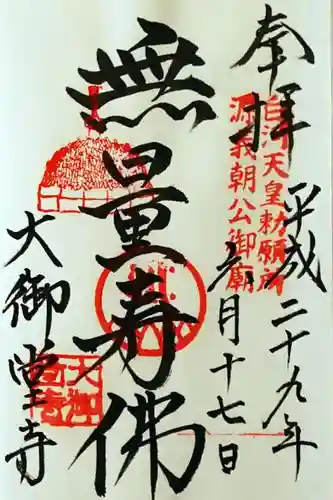 奉拝
白河天皇勅願所
源義朝公御廟
平成二十九年
六月十七日
無量寿佛
大御堂寺